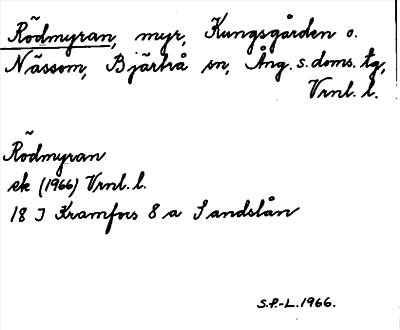 Rödmyran, myr, Kungsgården o.
Nässom, Bjärtrå sn, Ång. s. doms. tg,
Vrnl. l.
Rödmyran
ek (1966) Vrnl. l.
18 J Kramfors 8 a Sandslån
S.P.-L. 1966.